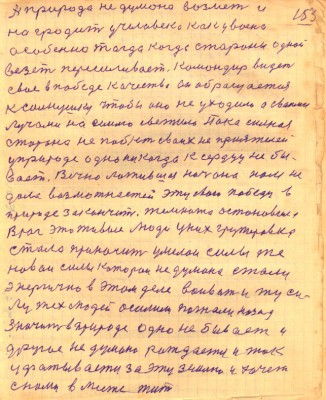 153
А природа не думона возмет и
на градит училовека как двоено
особенно тогда когда староны одной
везет пересиливает. Командир видет
свое в победе качество он обращается
к солнушку чтобы оно не уходило а своими
лучами на светило Пока сильная
сторона не побют своих не приятелей
у природе одно никогда к сердцу не бы-
вает. Вечно ложившая ночь на поля не
дала возможностей эту свою победу в
природе закончит. темнота остановела
Враг это живые люди у них групировка
стала приночит умелой силы же
новой силы которой не думона стали
энергично в этом деле воиват и ту си-
лу тех людей осилит погнали назад
Значит в природе одно не бывает и
другое не думоно рождается и так
у в за эту и хочет
снами в месте жит